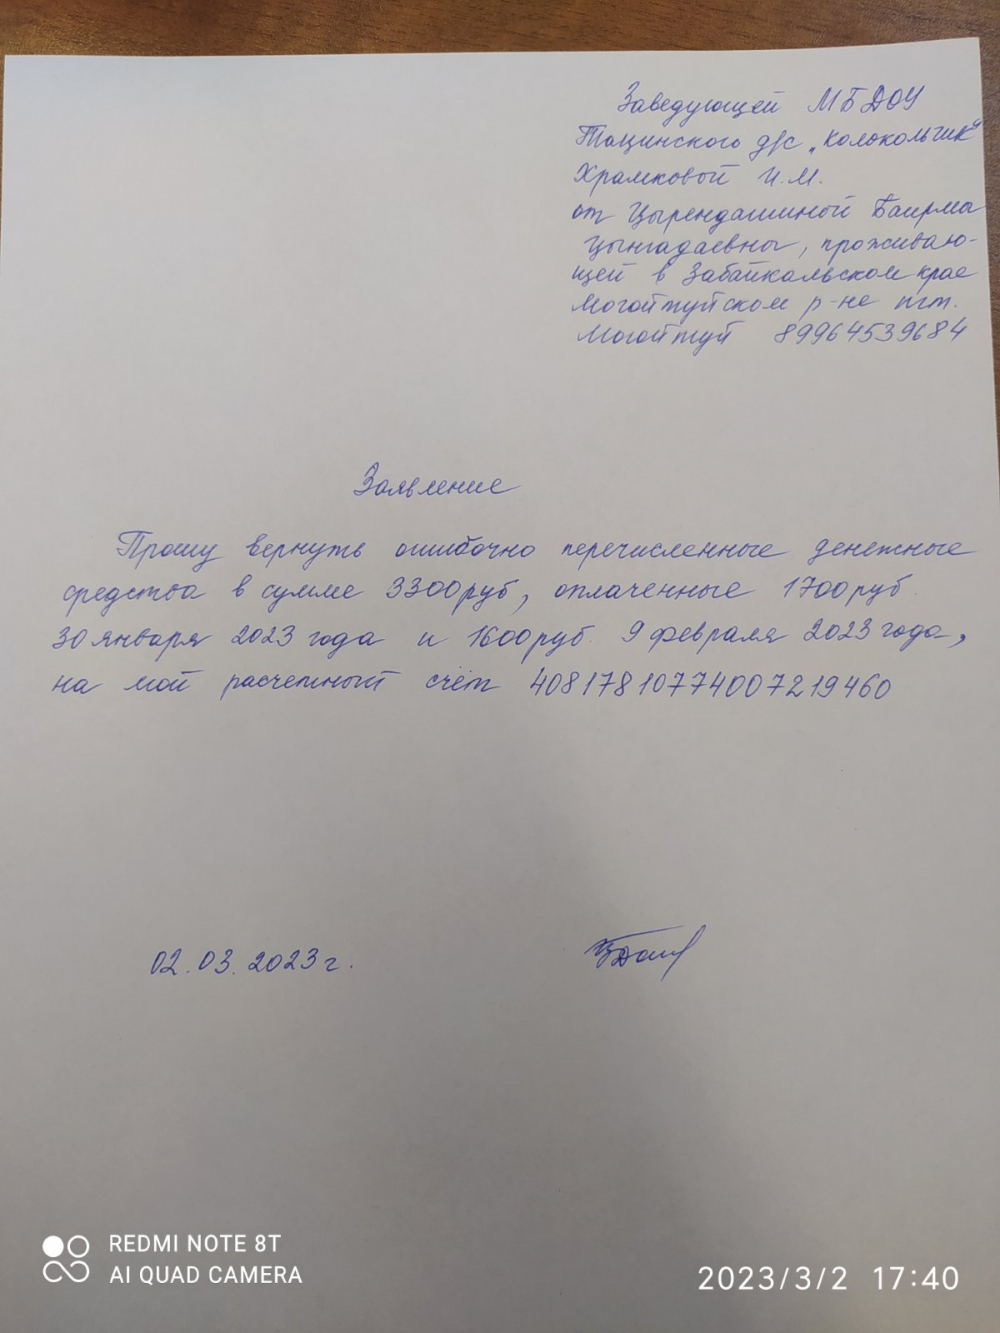 Заведующей МБДОУ
Тацинского д/с „Колокольчик"
Храмковой И.М.
от Цырендашиной Баирма
Цынгадаевны, проживаю-
щей в Забайкальском крае
Могойтуйском р-не пгт.
Могойтуй 89964539684
Заявление
Прошу вернуть ошибочно перечисленные денежные
средства в сумме 3300руб, оплаченные 1700руб.
30 января 2023 года и 1600руб. 9 февраля 2023 года,
на мой расчетный счёт 40817810774007219460
02.03.2023 г.
REDMI NOTE 8T
AI QUAD CAMERA
2023/3/2 17:40